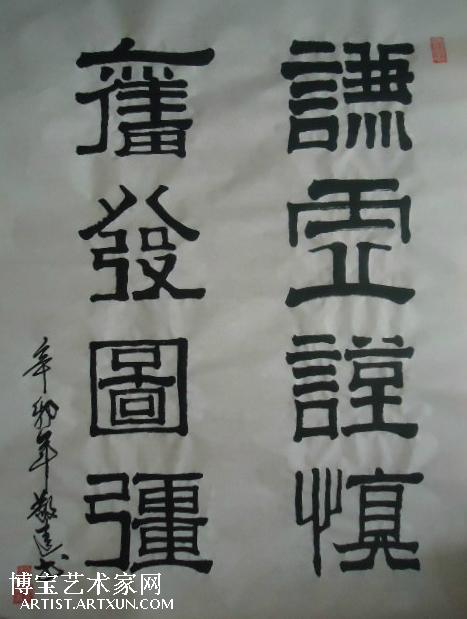 謙虛謹慎
奮發圖彊
辛卯年
博宝艺术家网
ARTIST.ARTXUN.COM